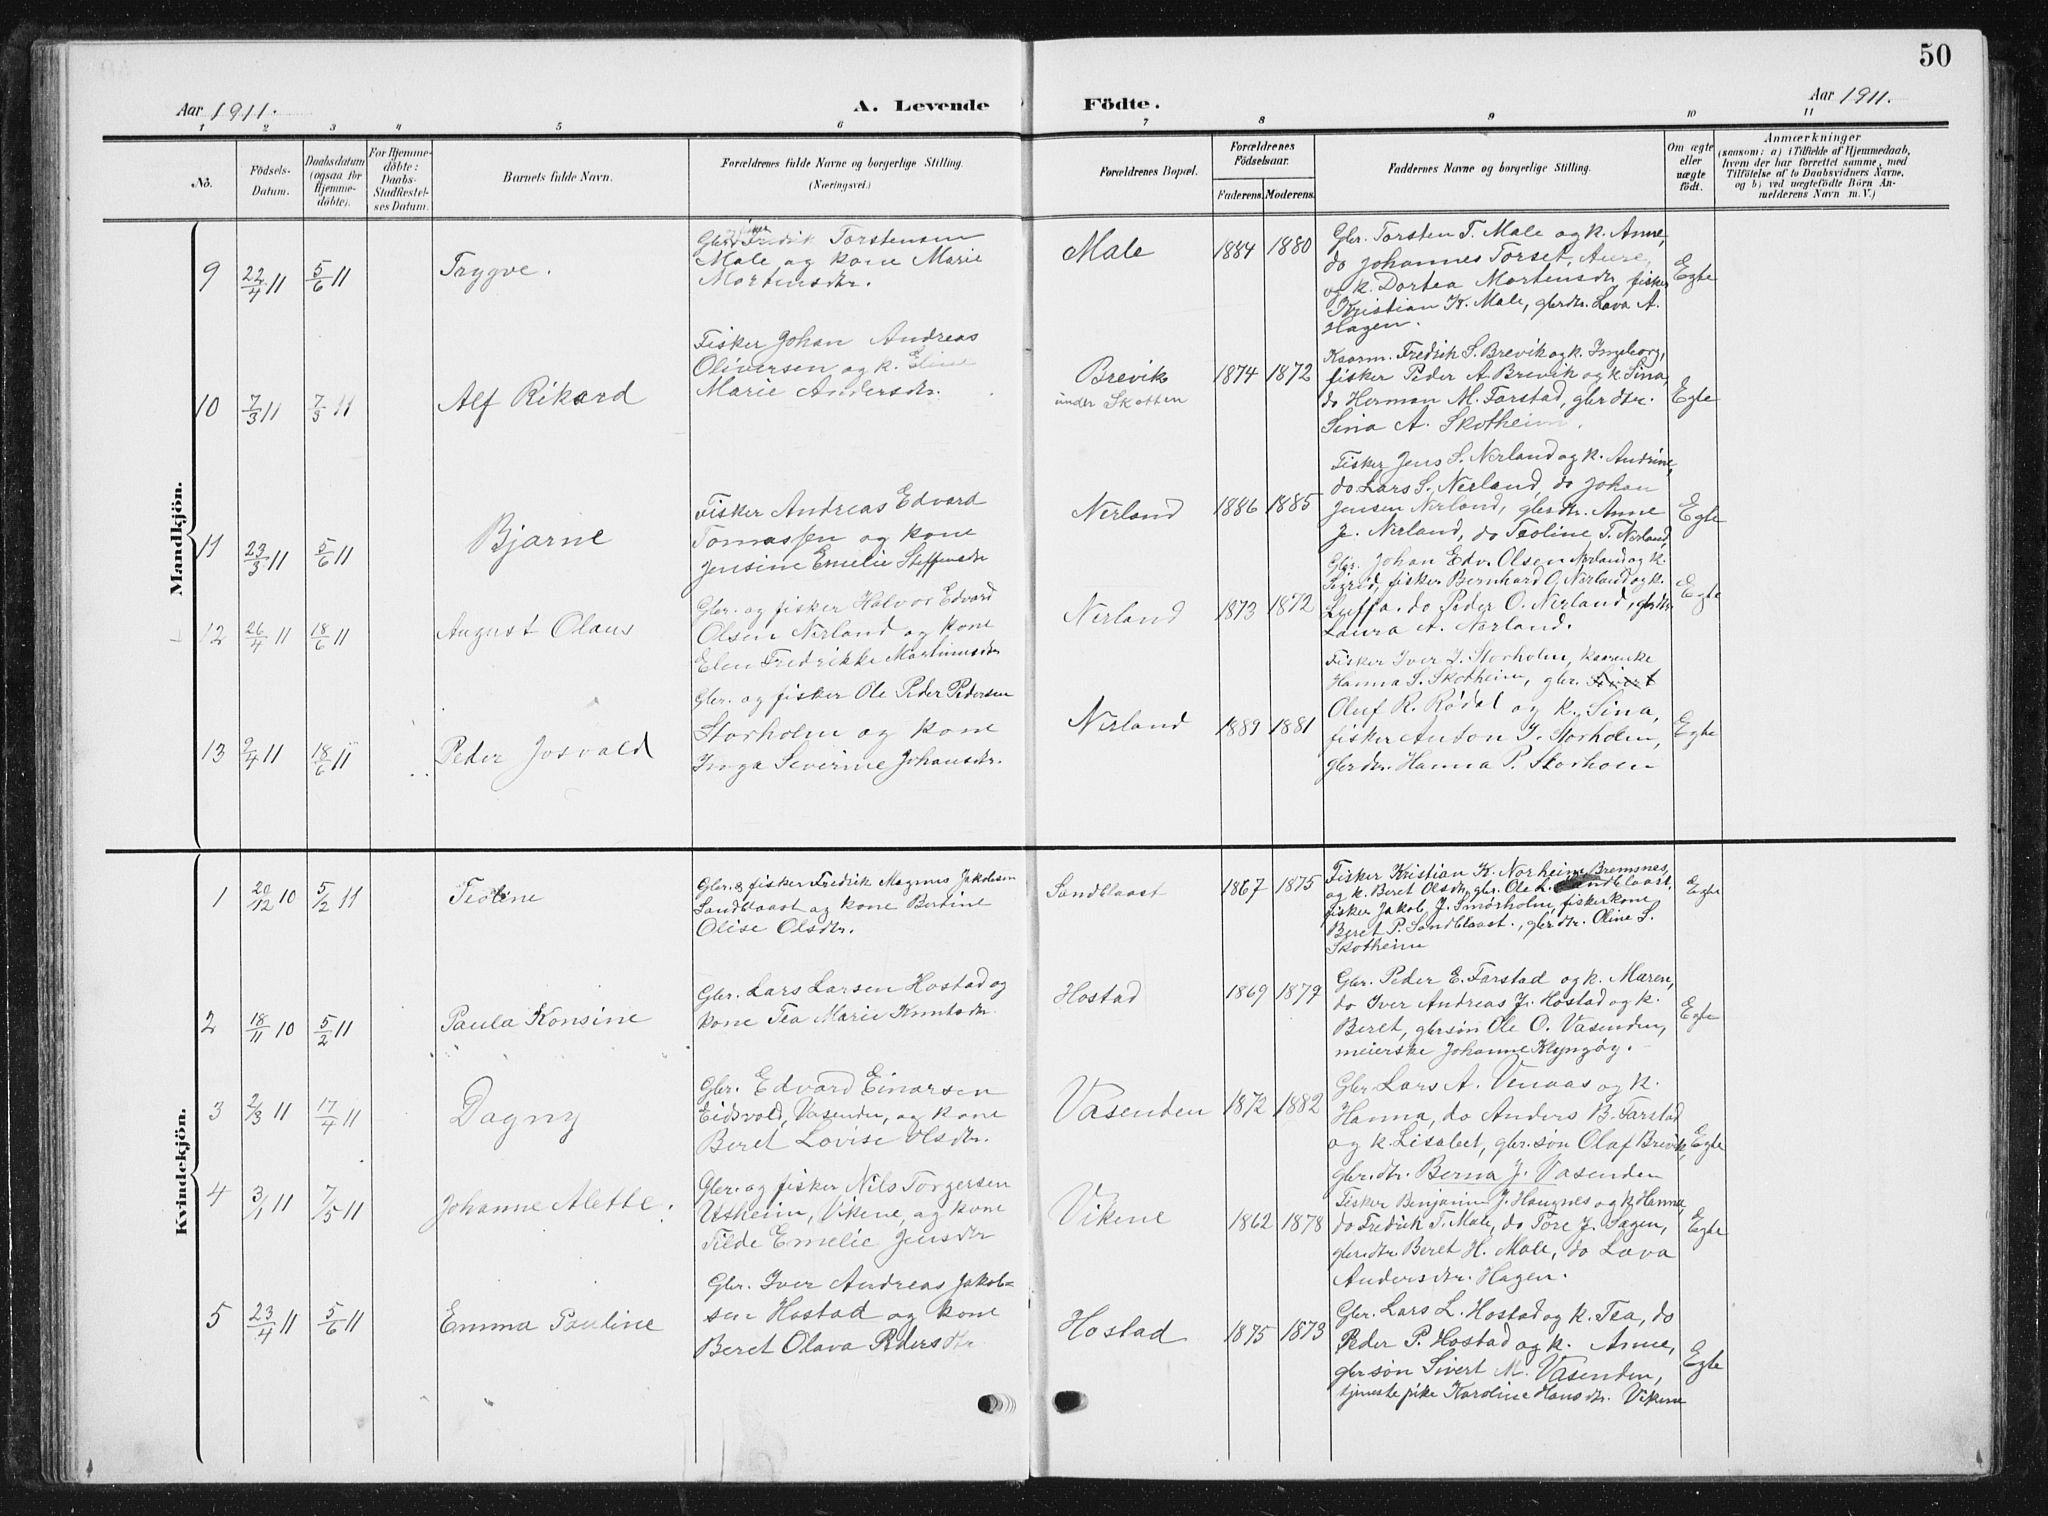 50
Aar 1911.
A. Levende Födte.
Aar 1911.
1 2 3 4 5 6 7 8 9 10 11
No.
Födsels-
Datum.
Daabsdatum
(ogsaa for
Hjemme-
döbte).
For Hjemme-
döbte:
Daabs-
Stadfæstel-
ses Datum.
Barnets fulde Navn.
Forældrenes fulde Navne og borgerlige Stilling.
(Næringsvei.)
Forældrenes Bopæl.
Forældrenes
Födselsaar.
Faderens. Moderens.
Faddernes Navne og borgerlige Stilling.
Om ægte
eller
uægte
født.
Anmærkninger
(saasom: a) i Tilfælde af Hjemmedaab,
hvem der har forrettet samme, med
Tilföielse af to Daabsvidners Navne,
og b) ved uægtefödte Börn An-
melderens Navn m. V.)
Mandkjön.
9 22/4 11 5/6 11
Trygve.
Gbr. Fredrik Torstensen
Male og kone Marie
Mortensdtr.
Male
1884 1880
Gbr. Torsten T. Male og k. Anne,
do Johannes Torset, Aure,
og k. Dortea Mortensdtr, fisker
Kristian K. Male, gbrdtr. Lava A.
Hagen.
Egte
10 7/3 11 7/5 11
Alf Rikard
Fisker Johan Andreas
Oliversen og k. Eline
Marie Andersdtr.
Brevik
under Skotten
1874 1872
Kaarm. Fredrik S. Brevik og k. Ingeborg,
fisker Peder A. Brevik og k. Sina,
do Herman M. Farstad, gbrdtr.
Sina A. Skotheim.
Egte
11 23/3 11 5/6 11
Bjarne
Fisker Andreas Edvard
Tomassen og kone
Jensine Emelie Steffensdtr
Nerland
1886 1885
Fisker Jens S. Nerland og k. Andrine,
do Lars S. Nerland, do Johan
Jensen Nerland, gbrsdtr. Anne
J. Nerland, do Teoline T. Nerland
Egte
12 26/4 11 18/6 11
August Olaus
Gbr. og fisker Halvor Edvard
Olsen Nerland og kone
Elen Fredrikke Martinusdtr
Nerland
1873 1872
Gbr. Johan Edv. Olsen Nerland og k.
Sigrid, fisker Bernhard O. Nerland og k.
Luffa. do Peder O. Nerland, gbrdtr.
Laura A. Nerland.
Egte
13 2/4 11 18/6 11
Peder Josvald
Gbr. og fisker Ole Peder Pedersen
Storholm og kone
Inga Severine Johansdtr.
Nerland
1889 1881
Fisker Iver J. Storholm, kaarenke
Hanna S. Skotheim, gbr. Sivert
Oluf R. Rødal og k. Sina,
fisker Anton J. Storholm,
gbrdtr. Hanna P. Storholm
Egte
Kvindekjön.
1 20/12 10 5/2 11
Teoline
Gbr. & fisker Fredrik Magnus Jakobsen
Sandblaast og kone Bertine
Olise Olsdtr.
Sandblaast
1867 1875
Fisker Kristian K. Norheim Bremsnes,
og k. Beret Olsdtr, gbr. Ole L. Sandblaast,
fisker Jakob J. Smørholm, fiskerkone
Beret P. Sandblaast., gbrdtr. Oline S.
Skotheim
Egte
2 18/11 10 5/2 11
Paula Konsine
Gbr. Lars Larsen Hostad og
kone Tea Marie Knutsdtr
Hostad
1869 1879
Gbr. Peder E. Farstad og k. Maren,
do Iver Andreas J. Hostad og k.
Beret, gbrsøn Ole O. Vasenden,
meierske Johanne Klyngøy.
Egte
3 2/3 11 17/4 11
Dagny
Gbr. Edvard Einarsen
Eidsvold, Vasenden, og kone
Beret Lovise Olsdtr.
Vasenden
1872 1882
Gbr. Lars A. Venaas og k.
Hanna, do Anders B. Farstad
og k. Lisabet, gbr.søn Olaf Brevik,
gbr.dtr. Berna J. Vasenden
Egte
4 3/1 11 7/5 11
Johanne Alette.
Gbr. og fisker Nils Torgersen
Utsheim, Vikene, og kone
Tilde Emelie Jensdtr
Vikene
1862 1878
Fisker Benjamin J. Haugnes og k. Hanna,
do Fredrik T. Male, do Tore J. Sagen,
gbr.dtr. Beret H. Male, do Lava
Andersdtr. Hagen.
Egte
5 23/4 11 5/6 11
Emma Pauline
Gbr. Iver Andreas Jakob-
sen Hostad og kone
Beret Olava Pedersdtr
Hostad
1875 1873
Gbr. Lars L. Hostad og k. Tea, do
Peder P. Hostad og k. Anne,
gbrsøn Sivert M. Vasenden,
tjenestepike Karoline Hansdtr. Vikene
Egte